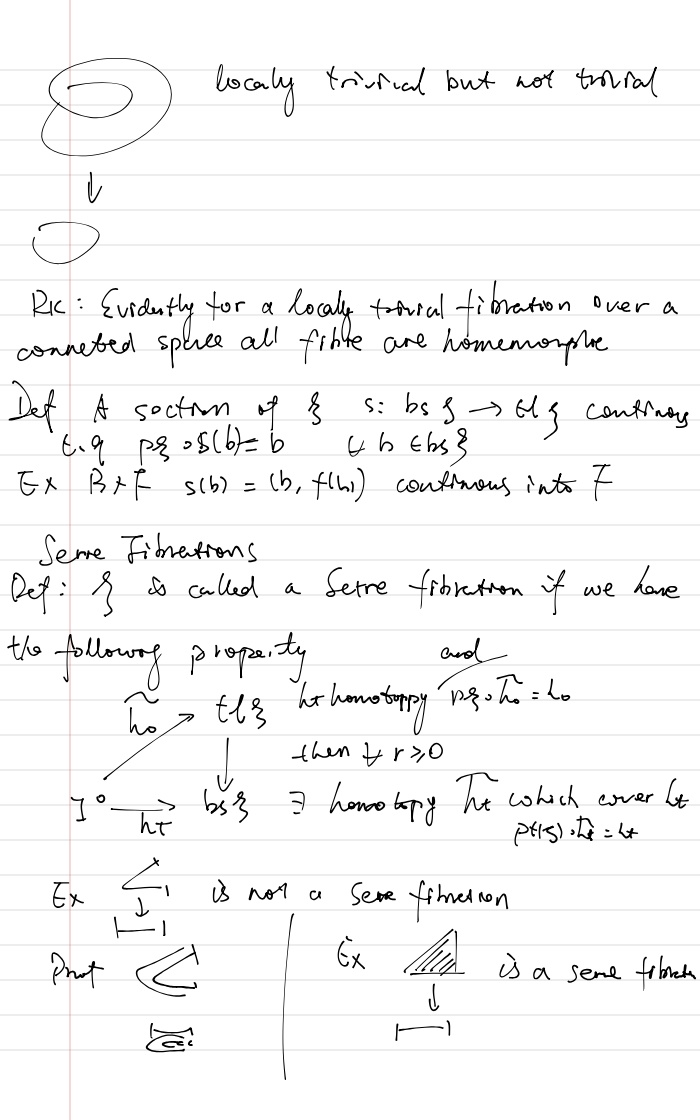 localy trivical but not trivial
Rk : Evidently for a localy trivial fibration over a
conneted spave all fibre are homemorphic
Def A section of ξ s: bs ξ → tl ξ continous
t.q pξ ∘ s(b) = b ∀ b ∈ bs ξ
Ex B×F s(b) = (b, f(b)) continous into F
Serre Fibrations
Def : ξ is called a Serre fibration if we have
the following property and
h̃₀ tl ξ ht homotoppy pξ ∘ h̃₀ = h₀
then ∀ r ≥ 0
I⁰ → bs ξ ∃ homotopy h̃t which cover ht
ht
∘ h̃t = ht
Ex is not a Serre fibration
Ex is a serre fibration